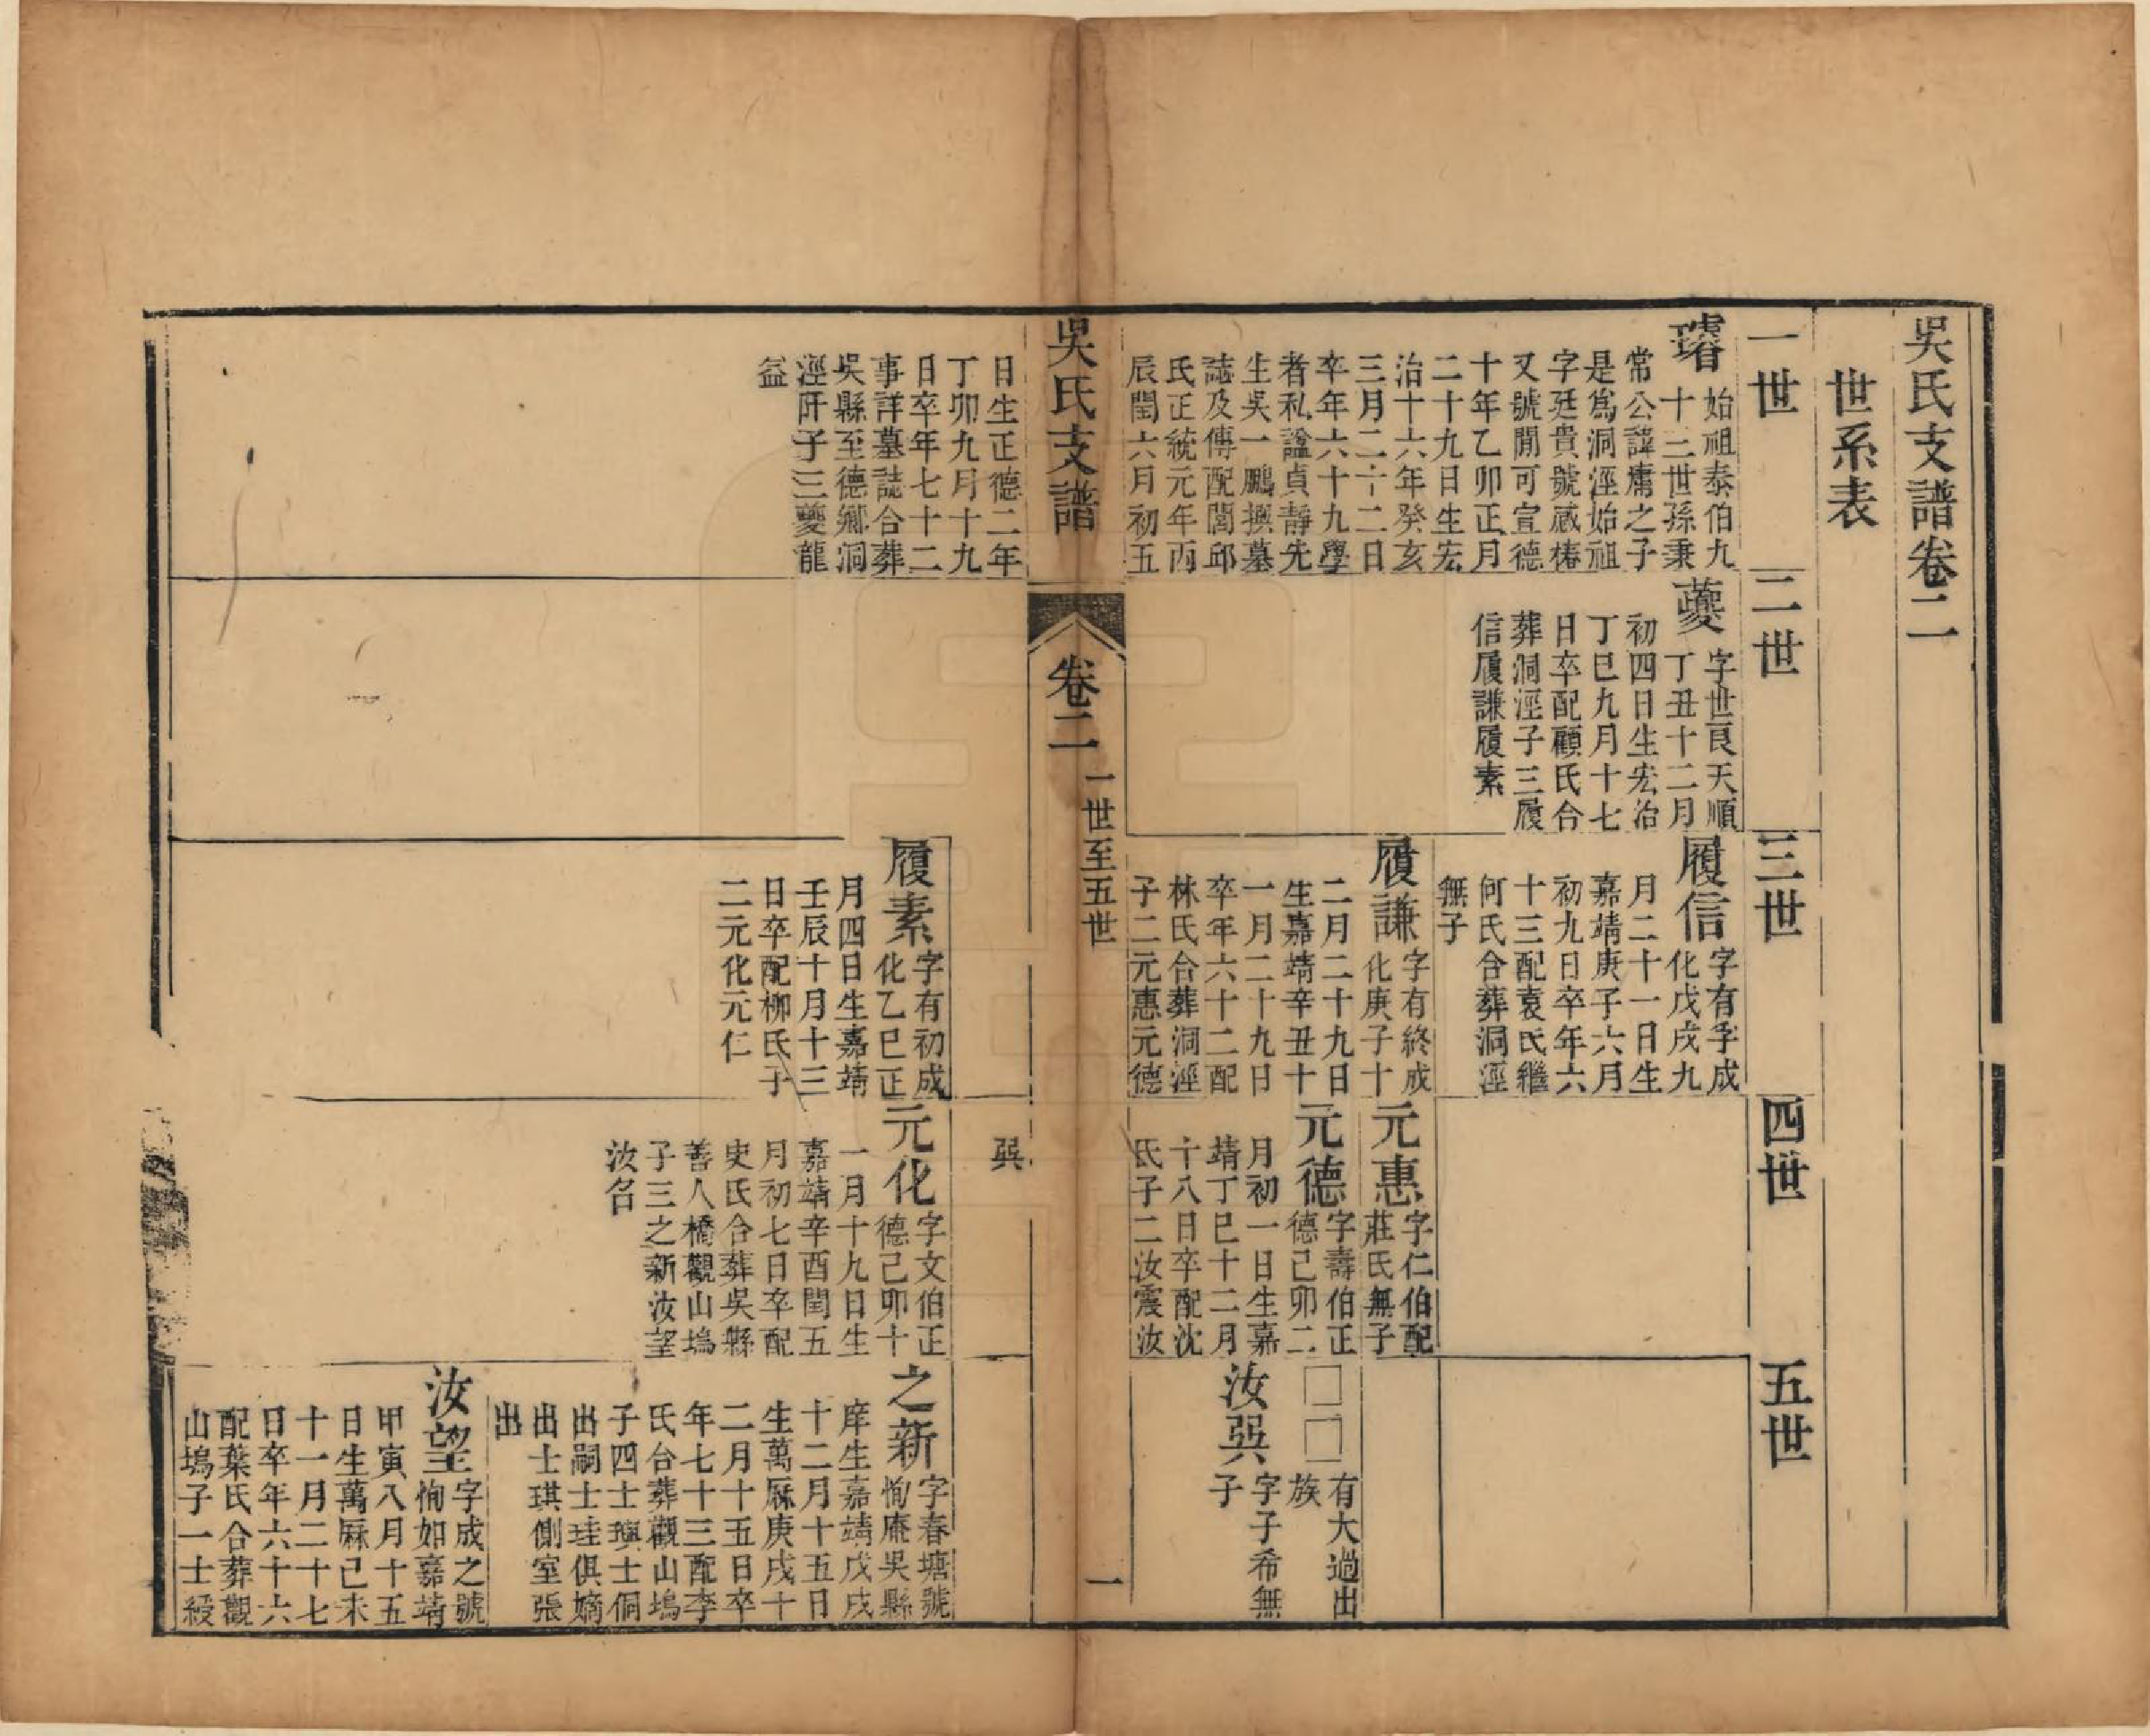 吳氏支譜卷二
世系表
一世
璿
始祖泰伯九
十三世孫秉
常公諱庸之子
是爲洞涇始祖
字廷貴號葳椿
又號閒可宣德
十年乙卯正月
二十九日生宏
治十六年癸亥
三月二十二日
卒年六十九學
者私諡貞靜先
生吳一鵬撰墓
誌及傳配閭邱
氏正統元年丙
辰閏六月初五
二世
夔
字世良天順
丁丑十二月
初四日生宏治
丁巳九月十七
日卒配顧氏合
葬洞涇子三履
信履謙履素
三世
履信
字有孚成
化戊戌九
月二十一日生
嘉靖庚子六月
初九日卒年六
十三配袁氏繼
何氏合葬洞涇
無子
履謙
字有終成
化庚子十
二月二十九日
生嘉靖辛丑十
一月二十九日
卒年六十二配
林氏合葬洞涇
子二元惠元德
四世
元惠
字仁伯配
莊氏無子
元德
字壽伯正
德己卯二
月初一日生嘉
靖丁巳十二月
十八日卒配沈
氏子二汝震汝
五世
□□
有大過出
族
汝巽
字子希無
子
吳氏支譜
卷二
一世至五世
一
日生正德二年
丁卯九月十九
日卒年七十二
事詳墓誌合葬
吳縣至德鄉洞
涇阡子三夔龍
益
履素
字有初成
化乙巳正
月四日生嘉靖
壬辰十月十三
日卒配柳氏子
二元化元仁
巽
元化
字文伯正
德己卯十
一月十九日生
嘉靖辛酉閏五
月初七日卒配
史氏合葬吳縣
善人橋觀山塢
子三之新汝望
汝召
之新
字春塘號
恂庵吳縣
庠生嘉靖戊戌
十二月十五日
生萬厤庚戌十
二月十五日卒
年七十三配李
氏合葬觀山塢
子四士璵士侗
出嗣士珪俱嫡
出士琪側室張
出
汝望
字成之號
恂如嘉靖
甲寅八月十五
日生萬厤己未
十一月二十七
日卒年六十六
配葉氏合葬觀
山塢子一士綬